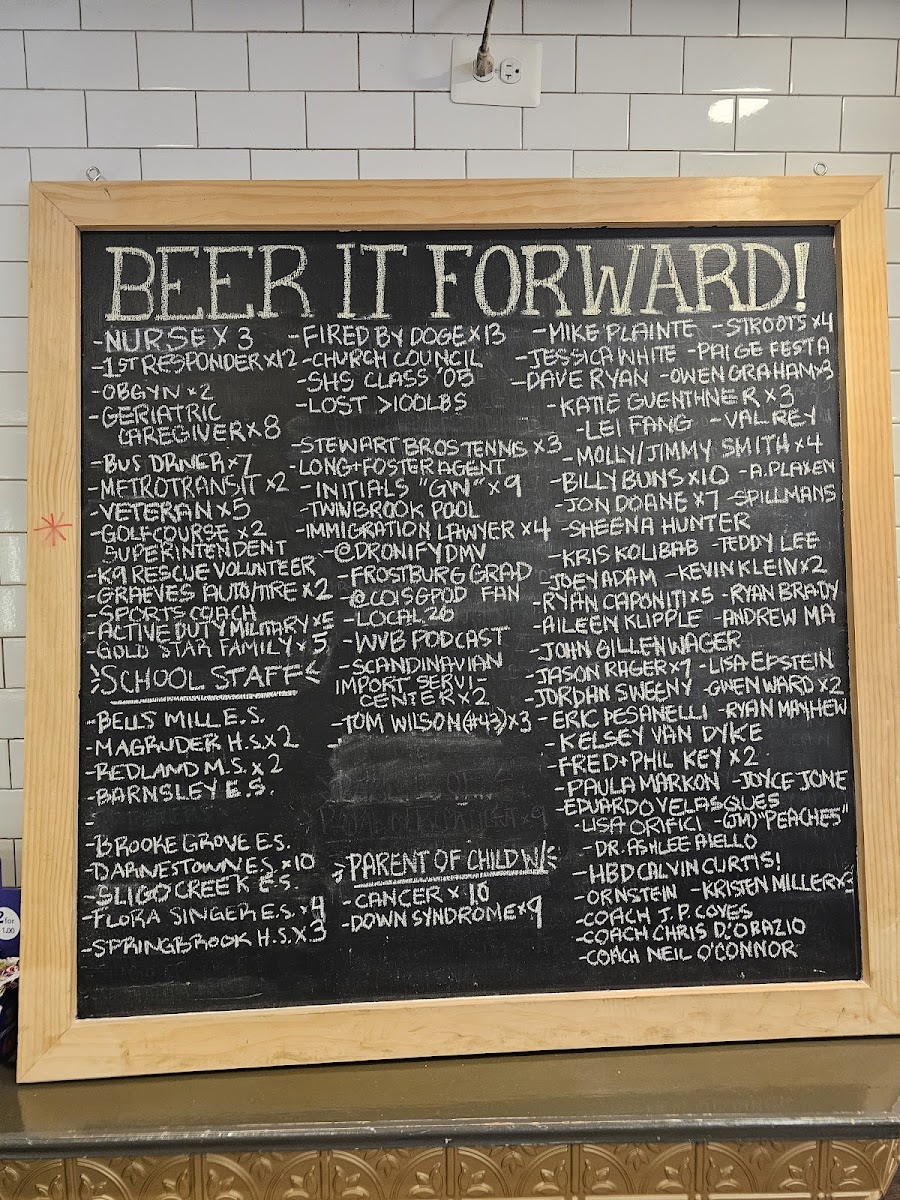 BEER IT FORWARD!
-NURSE X 3
-1ST RESPONDER x12
-OBGYN x2
-GERIATRIC
CAREGIVER x 8
-BUS DRIVER x7
-METROTRANSIT x2
-VETERAN x5
-GOLFCOURSE x2
SUPERINTENDENT
-K9 RESCUE VOLUNTEER
-GRAEVES AUTO/TIRE x2
-SPORTS COACH
-ACTIVE DUTY MILITARY x5
-GOLD STAR FAMILY x 5
SCHOOL STAFF
-BELLS MILL E.S.
-MAGRUDER H.S. x 2
-REDLAND M.S. x 2
-BARNSLEY E.S.
-BROOKE GROVE E.S.
-DARNESTOWN E.S. x10
-SLIGO CREEK E.S.
-FLORA SINGER E.S. x4
-SPRINGBROOK H.S. X3
-FIRED BY DOGE x 13
-CHURCH COUNCIL
-SHS CLASS '05
-LOST >100LBS
-STEWART BROS TENNIS x 3
-LONG+FOSTER AGENT
-INITIALS "GW" x 9
-TWINBROOK POOL
-IMMIGRATION LAWYER x 4
-@DRONIFYDMV
-FROSTBURG GRAD
-@COISGPOD FAN
-LOCAL 26
-WVB PODCAST
-SCANDINAVIAN
IMPORT SERVI-
CENTER x 2
-TOM WILSON (#43) x 3
PARENT OF CHILD W/
-CANCER x 10
-DOWN SYNDROME x9
-MIKE PLAINTE -STROOTS x4
-JESSICA WHITE -PAIGE FESTA
-DAVE RYAN -OWEN GRAHAM x3
-KATIE GUENTHNER x 3
-LEI FANG -VAL REY
-MOLLY/JIMMY SMITH x 4
-BILLY BUNS x10 -A. PLAXEN
-JON DOANE x 7 -SPILLMANS
-SHEENA HUNTER
-KRIS KOLIBAB -TEDDY LEE
-JOEY ADAM -KEVIN KLEIN x2
-RYAN CAPONITI x5 -RYAN BRADY
-AILEEN KLIPPLE -ANDREW MA
-JOHN GILLENWAGER
-JASON RAGER x7 -LISA EPSTEIN
-JORDAN SWEENY -GWEN WARD x2
-ERIC PESANELLI -RYAN MAYHEW
-KELSEY VAN DYKE
-FRED+PHIL KEY x2
-PAULA MARKON -JOYCE JONE
-EDUARDO VELASQUES
-LISA ORIFICI -(JM) "PEACHES"
-DR. ASHLEE AIELLO
-HBD CALVIN CURTIS!
-ORNSTEIN -KRISTEN MILLER x3
-COACH J.P. COYES
-COACH CHRIS D'ORAZIO
-COACH NEIL O'CONNOR